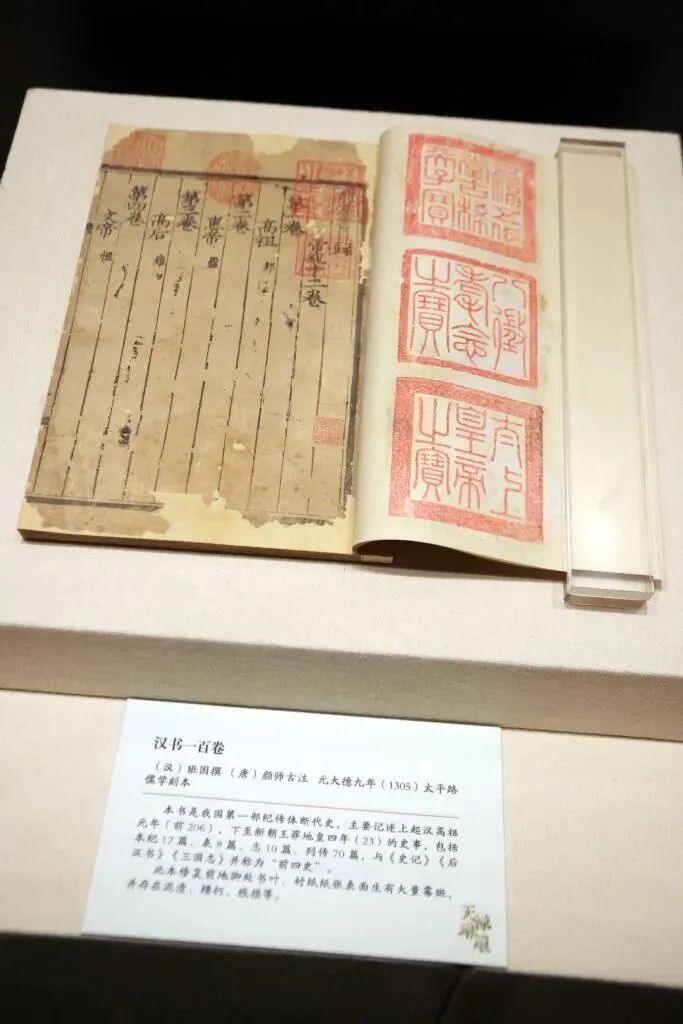 五福五代堂古稀天子寶
八徵耄念之寶
太上皇帝之寶
第一卷
高祖 邦
第二卷
惠帝 盈
第三卷
高后 雉
第四卷
文帝 恒
汉书一百卷
（汉）班固撰 （唐）颜师古注 元大德九年（1305）太平路
儒学刻本
本书是我国第一部纪传体断代史，主要记述上起汉高祖
元年（前206），下至新朝王莽地皇四年（23）的史事，包括
本纪12篇、表8篇、志10篇、列传70篇，与《史记》《后
汉书》《三国志》并称为“前四史”。
此本修复前地脚处书叶、衬纸纸张表面生有大量霉斑，
并存在泥渍、糟朽、残损等。